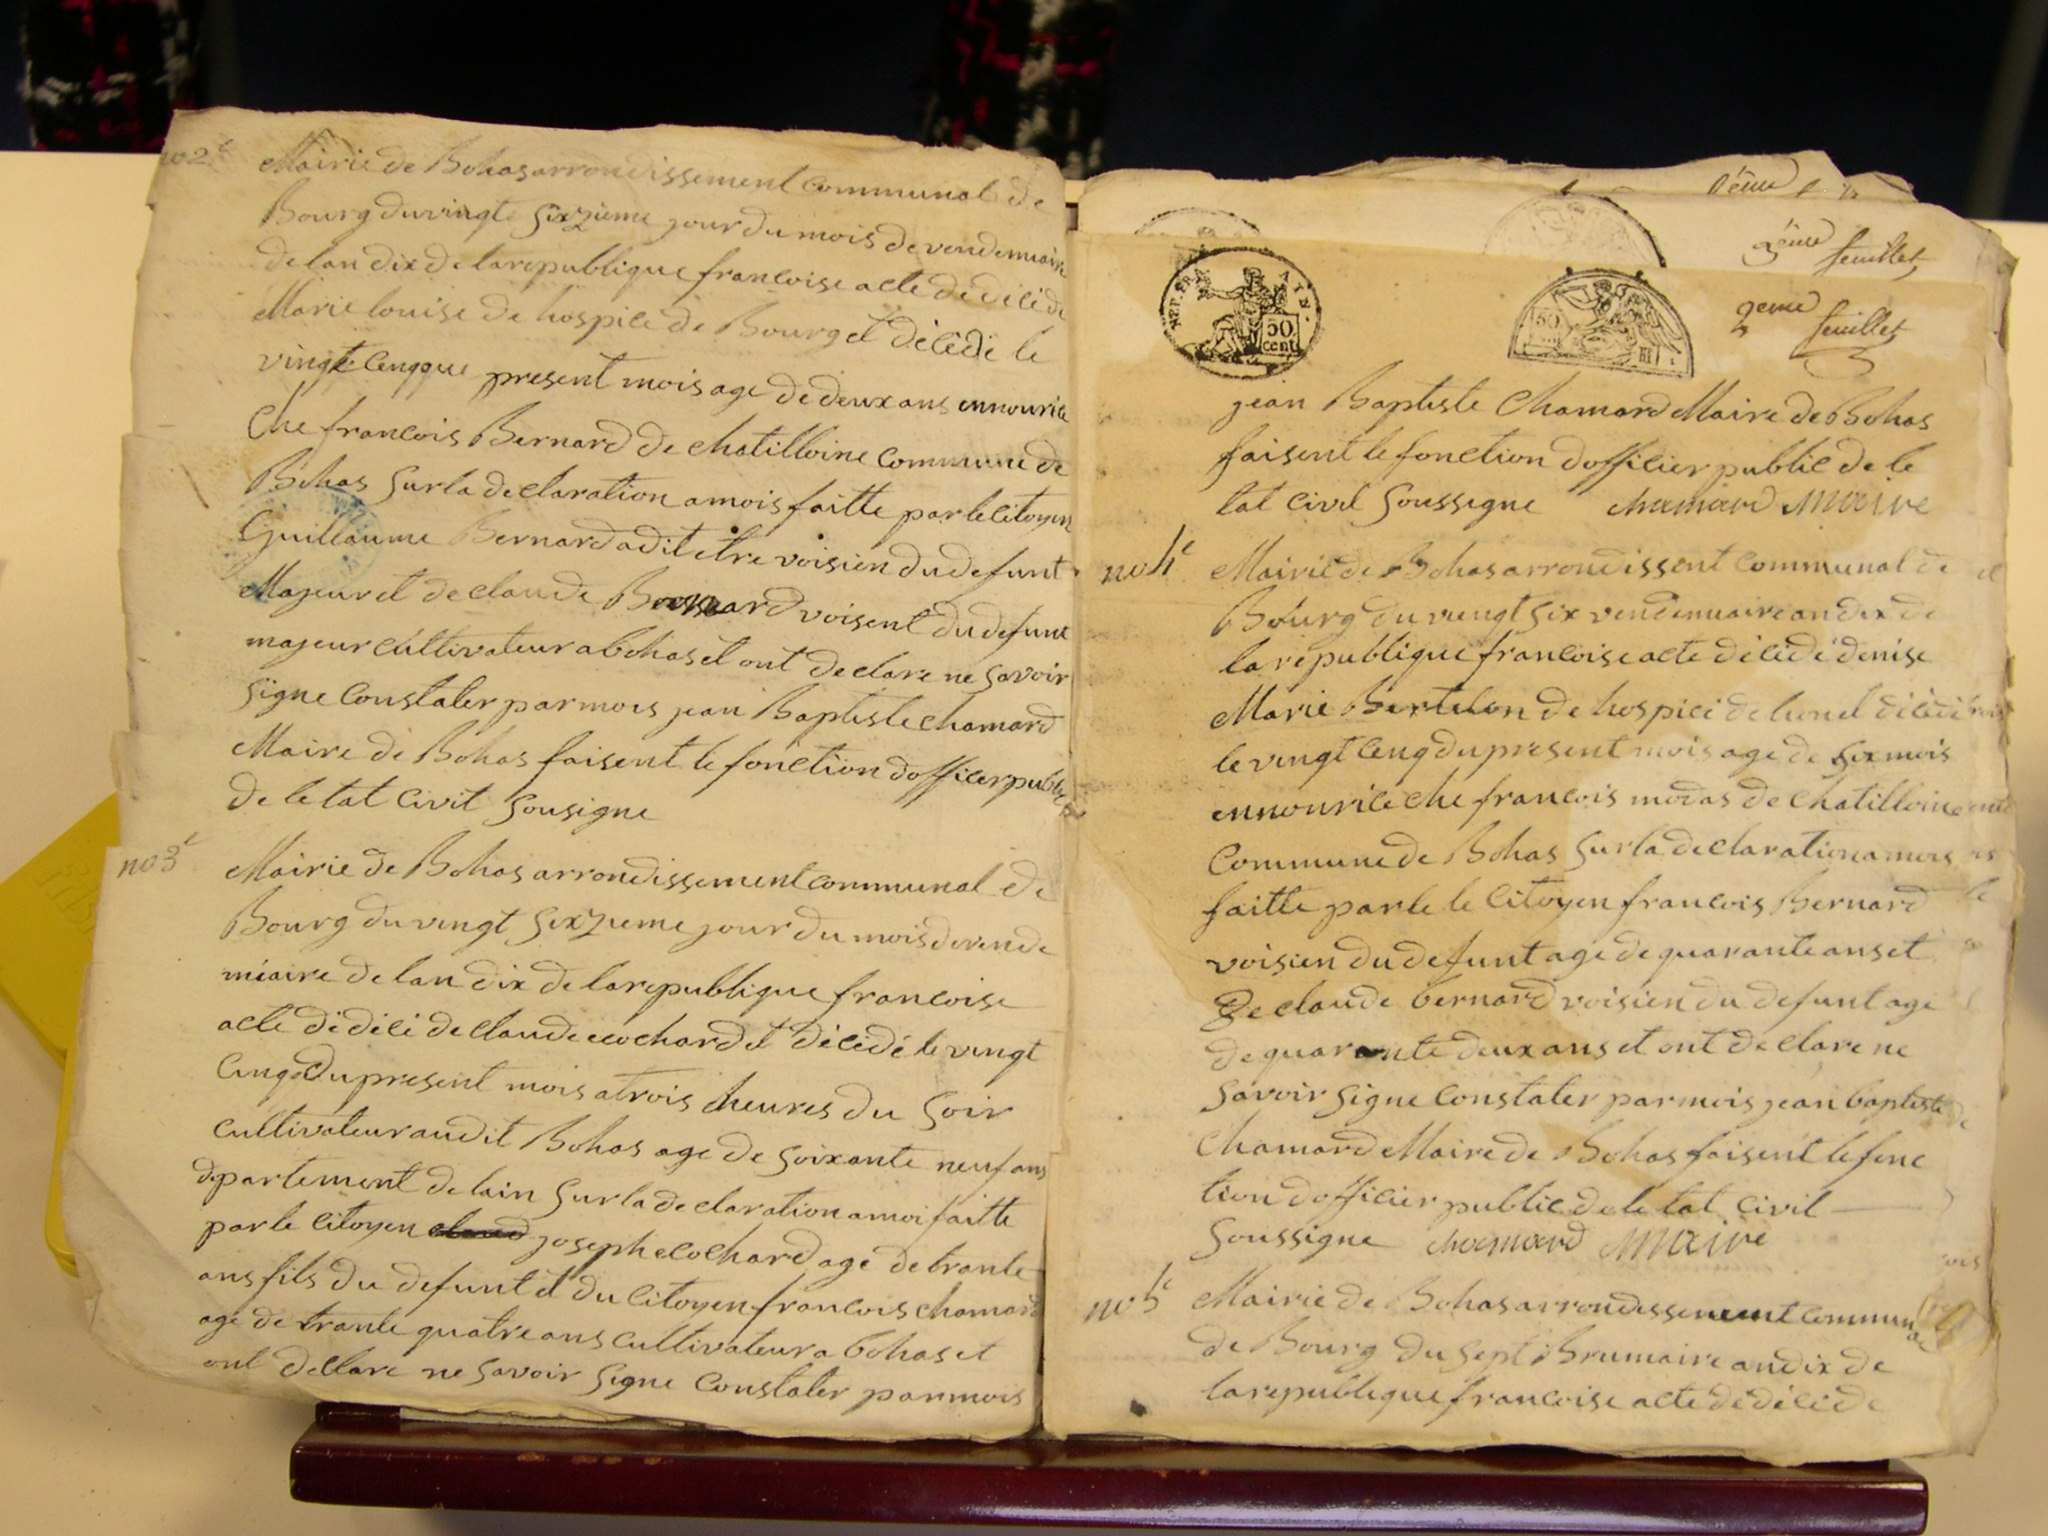 no 2e
Mairie de Bohas arrondissement communal de
Bourg du vingt sixzieme jour du mois de vendemiaire
de lan dix de la republique francoise acte de décè de
Marie louise de hospice de Bourg et décédé le
vingt cenq que present mois age de deux ans ennourice
Che francois Bernard de chatilloine commune de
Bohas sur la declaration a mois faitte par le citoyen
Guillaume Bernard adit etre voisien du defunt
Majeur et de claude Bernard voisent du defunt
majeur cultivateur a bohas et ont declare ne savoir
signe Constater par mois jean Baptiste chamard
Maire de Bohas faisent le fonction dofficer public
de le tat civit sousigne
no 3e
Mairie de Bohas arrondissement communal de
Bourg du vingt sixzieme jour du mois de vende
miaire de lan dix de la republique francoise
acte dédécé de claude cochard et décédé le vingt
cenq du present mois a trois cheures du soir
cultivateur audit Bohas age de soixante neuf ans
departement de lain sur la declaration a moi faitte
par le citoyen joseph cochard age de trante
ans fils du defunt et du citoyen francois chamard
age de trante quatre ans cultivateur a bohas et
ont declare ne savoir signe constater par mois
REP. FRA
50
cent
50
3eme
feuillet
2eme
feuillet
jean Baptiste Chamard Maire de Bohas
faisent le fonction dofficier public de le
tat civil soussigne chamard Maire
no 4e
Mairie de Bohas arrondissent communal de
Bourg du vengt six vendemiaire an dix de
la republique francoise acte décédé denise
Marie Bertelon de hospice de lunel décédé
le vingt cenq du present mois age de six mois
ennourice che francois modas de chatilloine
Commune de Bohas sur la declaration a mois
faitte par le le citoyen francois Bernard
voisien du defunt age de quarante ans et
De claude bernard voisien du defunt age
de quarante deux ans et ont declare ne
savoir signe constater par mois jean baptiste
chamard Maire de Bohas faisent le fonc
tion dofficier public de le tat civil
soussigne chamard Maire
no 5e
Mairie de Bohas arrondessement communal
de Bourg du sept Brumaire an dix de
la republeque francoise acte dédécé de